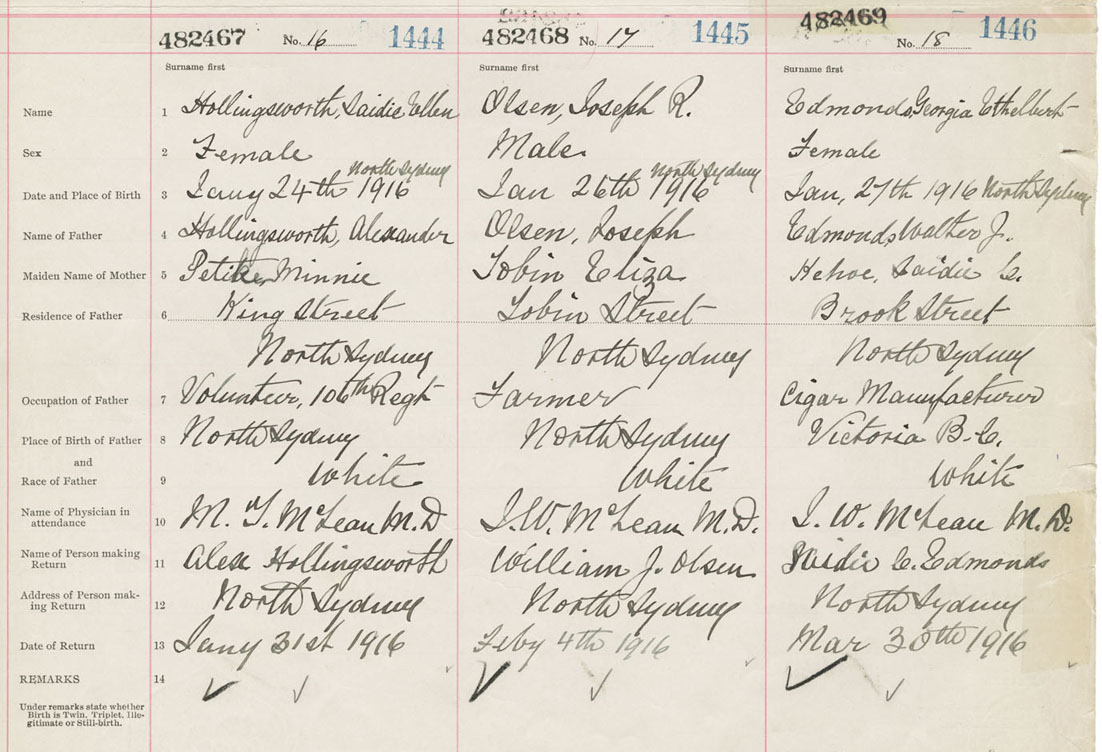 482467 No. 16 1444 482468 No. 17 1445 482469 No. 18 1446
Surname first Surname first Surname first
Name 1 Hollingsworth, Saidie Ellen Olsen, Joseph R. Edmonds, Georgia Ethelbert
Sex 2 Female Male Female
North Sydney North Sydney
Date and Place of Birth 3 Jany 24th 1916 Jan 26th 1916 Jan, 27th 1916 North Sydney
Name of Father 4 Hollingsworth, Alexander Olsen, Joseph Edmonds, Walter J.
Maiden Name of Mother 5 Minnie Tobin Eliza Kehoe, Saidie C.
Residence of Father 6 King Street Tobin Street Brook Street
North Sydney North Sydney North Sydney
Occupation of Father 7 Volunteer, 106th Regt Farmer Cigar Manufacturer
Place of Birth of Father 8 North Sydney North Sydney Victoria B.C.
and
Race of Father 9 White White White
Name of Physician in attendance 10 M. T. McLean M.D J. W. McLean M.D. J. W. McLean M.D.
Name of Person making Return 11 Alex Hollingsworth William J. Olsen Saidie C. Edmonds
Address of Person mak-ing Return 12 North Sydney North Sydney North Sydney
Date of Return 13 Jany 31st 1916 Feby 4th 1916 Mar 30th 1916
REMARKS 14
Under remarks state whether
Birth is Twin, Triplet, Ille-
gitimate or Still-birth.